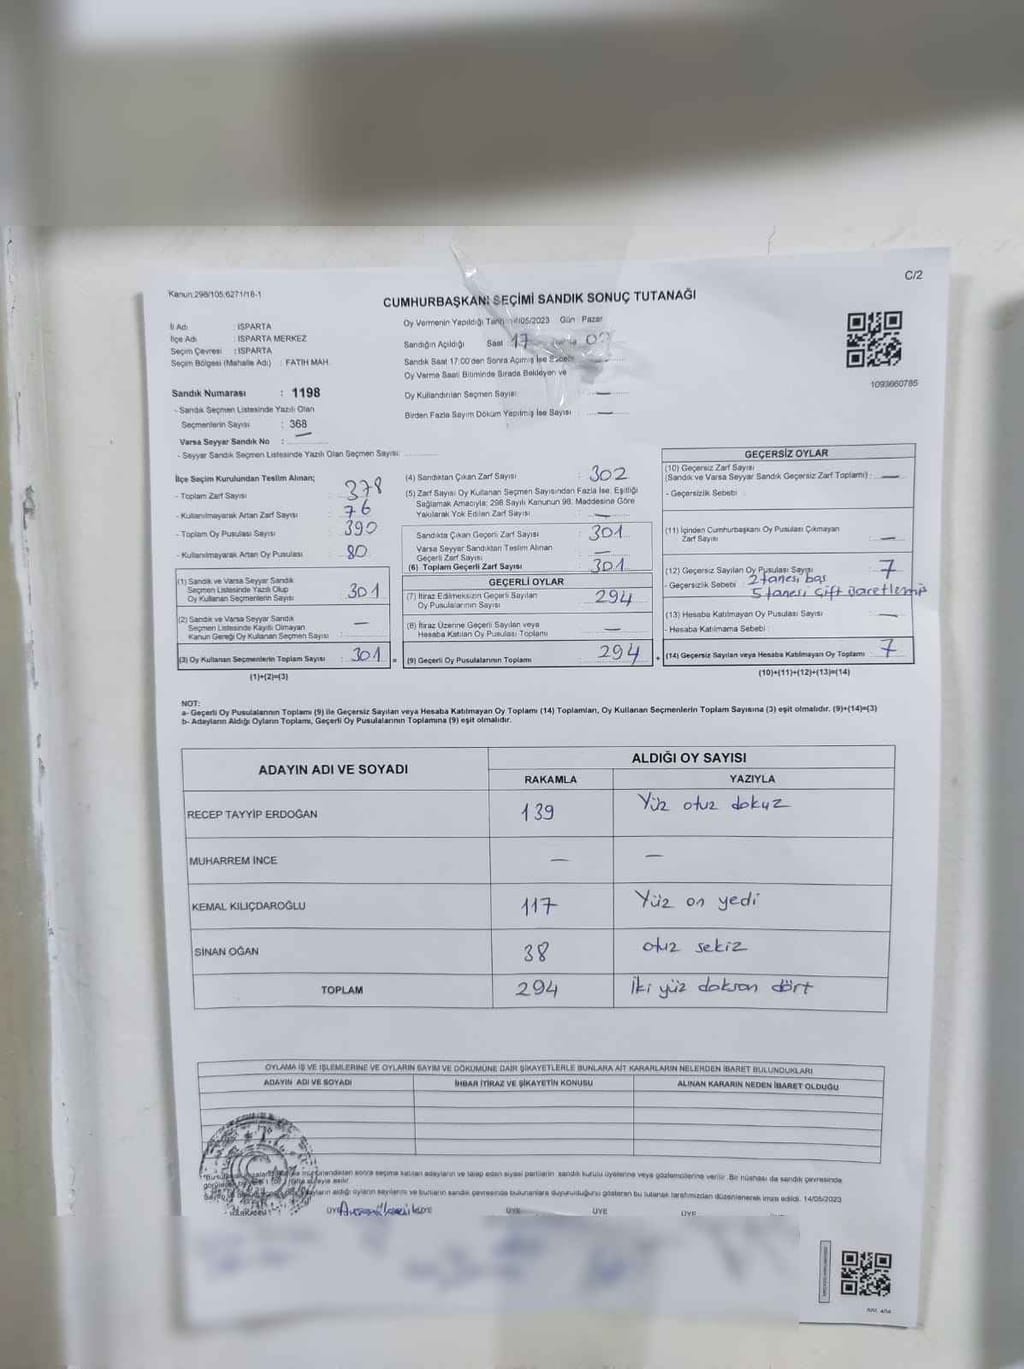 C/2
Kanun:298/105;6271/18-1
CUMHURBAŞKANI SEÇİMİ SANDIK SONUÇ TUTANAĞI
1093660785
İl Adı : ISPARTA
İlçe Adı : ISPARTA MERKEZ
Seçim Çevresi : ISPARTA
Seçim Bölgesi (Mahalle Adı) : FATİH MAH.
Sandık Numarası : 1198
- Sandık Seçmen Listesinde Yazılı Olan
Seçmenlerin Sayısı : 368
Varsa Seyyar Sandık No : —
- Seyyar Sandık Seçmen Listesinde Yazılı Olan Seçmen Sayısı:
Oy Vermenin Yapıldığı /05/2023 Gün Pazar
Sandığın Açıldığı Saat 17
Sandık Saat 17:00'den Sonra Açılmış İse
Oy Verme Saati Bitiminde Sırada Bekleyen ve
Oy Kullandırılan Seçmen Sayısı —
Birden Fazla Sayım Döküm Yapılmış İse Sayısı —
İlçe Seçim Kurulundan Teslim Alınan;
- Toplam Zarf Sayısı : 378
- Kullanılmayarak Artan Zarf Sayısı : 76
- Toplam Oy Pusulası Sayısı : 390
- Kullanılmayarak Artan Oy Pusulası : 80
(1) Sandık ve Varsa Seyyar Sandık
Seçmen Listesinde Yazılı Olup
Oy Kullanan Seçmenlerin Sayısı : 301
(2) Sandık ve Varsa Seyyar Sandık
Seçmen Listesinde Kayıtlı Olmayan
Kanun Gereği Oy Kullanan Seçmen Sayısı : —
(3) Oy Kullanan Seçmenlerin Toplam Sayısı : 301
(1)+(2)=(3)
(4) Sandıktan Çıkan Zarf Sayısı : 302
(5) Zarf Sayısı Oy Kullanan Seçmen Sayısından Fazla İse, Eşitliği
Sağlamak Amacıyla; 298 Sayılı Kanunun 98. Maddesine Göre
Yakılarak Yok Edilen Zarf Sayısı : —
Sandıkta Çıkan Geçerli Zarf Sayısı : 301
Varsa Seyyar Sandıktan Teslim Alınan
Geçerli Zarf Sayısı : —
(6) Toplam Geçerli Zarf Sayısı : 301
GEÇERLİ OYLAR
(7) İtiraz Edilmeksizin Geçerli Sayılan
Oy Pusulalarının Sayısı : 294
(8) İtiraz Üzerine Geçerli Sayılan veya
Hesaba Katılan Oy Pusulası Toplamı : —
(9) Geçerli Oy Pusulalarının Toplamı : 294
GEÇERSİZ OYLAR
(10) Geçersiz Zarf Sayısı
(Sandık ve Varsa Seyyar Sandık Geçersiz Zarf Toplamı) : —
- Geçersizlik Sebebi :
(11) İçinden Cumhurbaşkanı Oy Pusulası Çıkmayan
Zarf Sayısı : —
(12) Geçersiz Sayılan Oy Pusulası Sayısı : 7
- Geçersizlik Sebebi : 2 tanesi boş
5 tanesi çift işaretlenmiş
(13) Hesaba Katılmayan Oy Pusulası Sayısı : —
- Hesaba Katılmama Sebebi :
(14) Geçersiz Sayılan veya Hesaba Katılmayan Oy Toplamı : 7
(10)+(11)+(12)+(13)=(14)
NOT:
a- Geçerli Oy Pusulalarının Toplamı (9) ile Geçersiz Sayılan veya Hesaba Katılmayan Oy Toplamı (14) Toplamları, Oy Kullanan Seçmenlerin Toplam Sayısına (3) eşit olmalıdır. (9)+(14)=(3)
b- Adayların Aldığı Oyların Toplamı, Geçerli Oy Pusulalarının Toplamına (9) eşit olmalıdır.
ADAYIN ADI VE SOYADI
ALDIĞI OY SAYISI
RAKAMLA YAZIYLA
RECEP TAYYİP ERDOĞAN 139 Yüz otuz dokuz
MUHARREM İNCE — —
KEMAL KILIÇDAROĞLU 117 Yüz on yedi
SİNAN OĞAN 38 otuz sekiz
TOPLAM 294 İki yüz doksan dört
OYLAMA İŞ VE İŞLEMLERİNE VE OYLARIN SAYIM VE DÖKÜMÜNE DAİR ŞİKAYETLERLE BUNLARA AİT KARARLARIN NELERDEN İBARET BULUNDUKLARI
ADAYIN ADI VE SOYADI İHBAR İTİRAZ VE ŞİKAYETİN KONUSU ALINAN KARARIN NEDEN İBARET OLDUĞU
sonra seçime katılan adayların ve talep eden siyasi partilerin sandık kurulu üyelerine veya gözlemcilerine verilir. Bir nüshası da sandık çevresinde
aldığı oyların sayılarını ve bunların sandık çevresinde bulunanlara duyurulduğunu gösteren bu tutanak tarafımızdan düzenlenerek imza edildi. 14/05/2023
ÜYE ÜYE ÜYE ÜYE